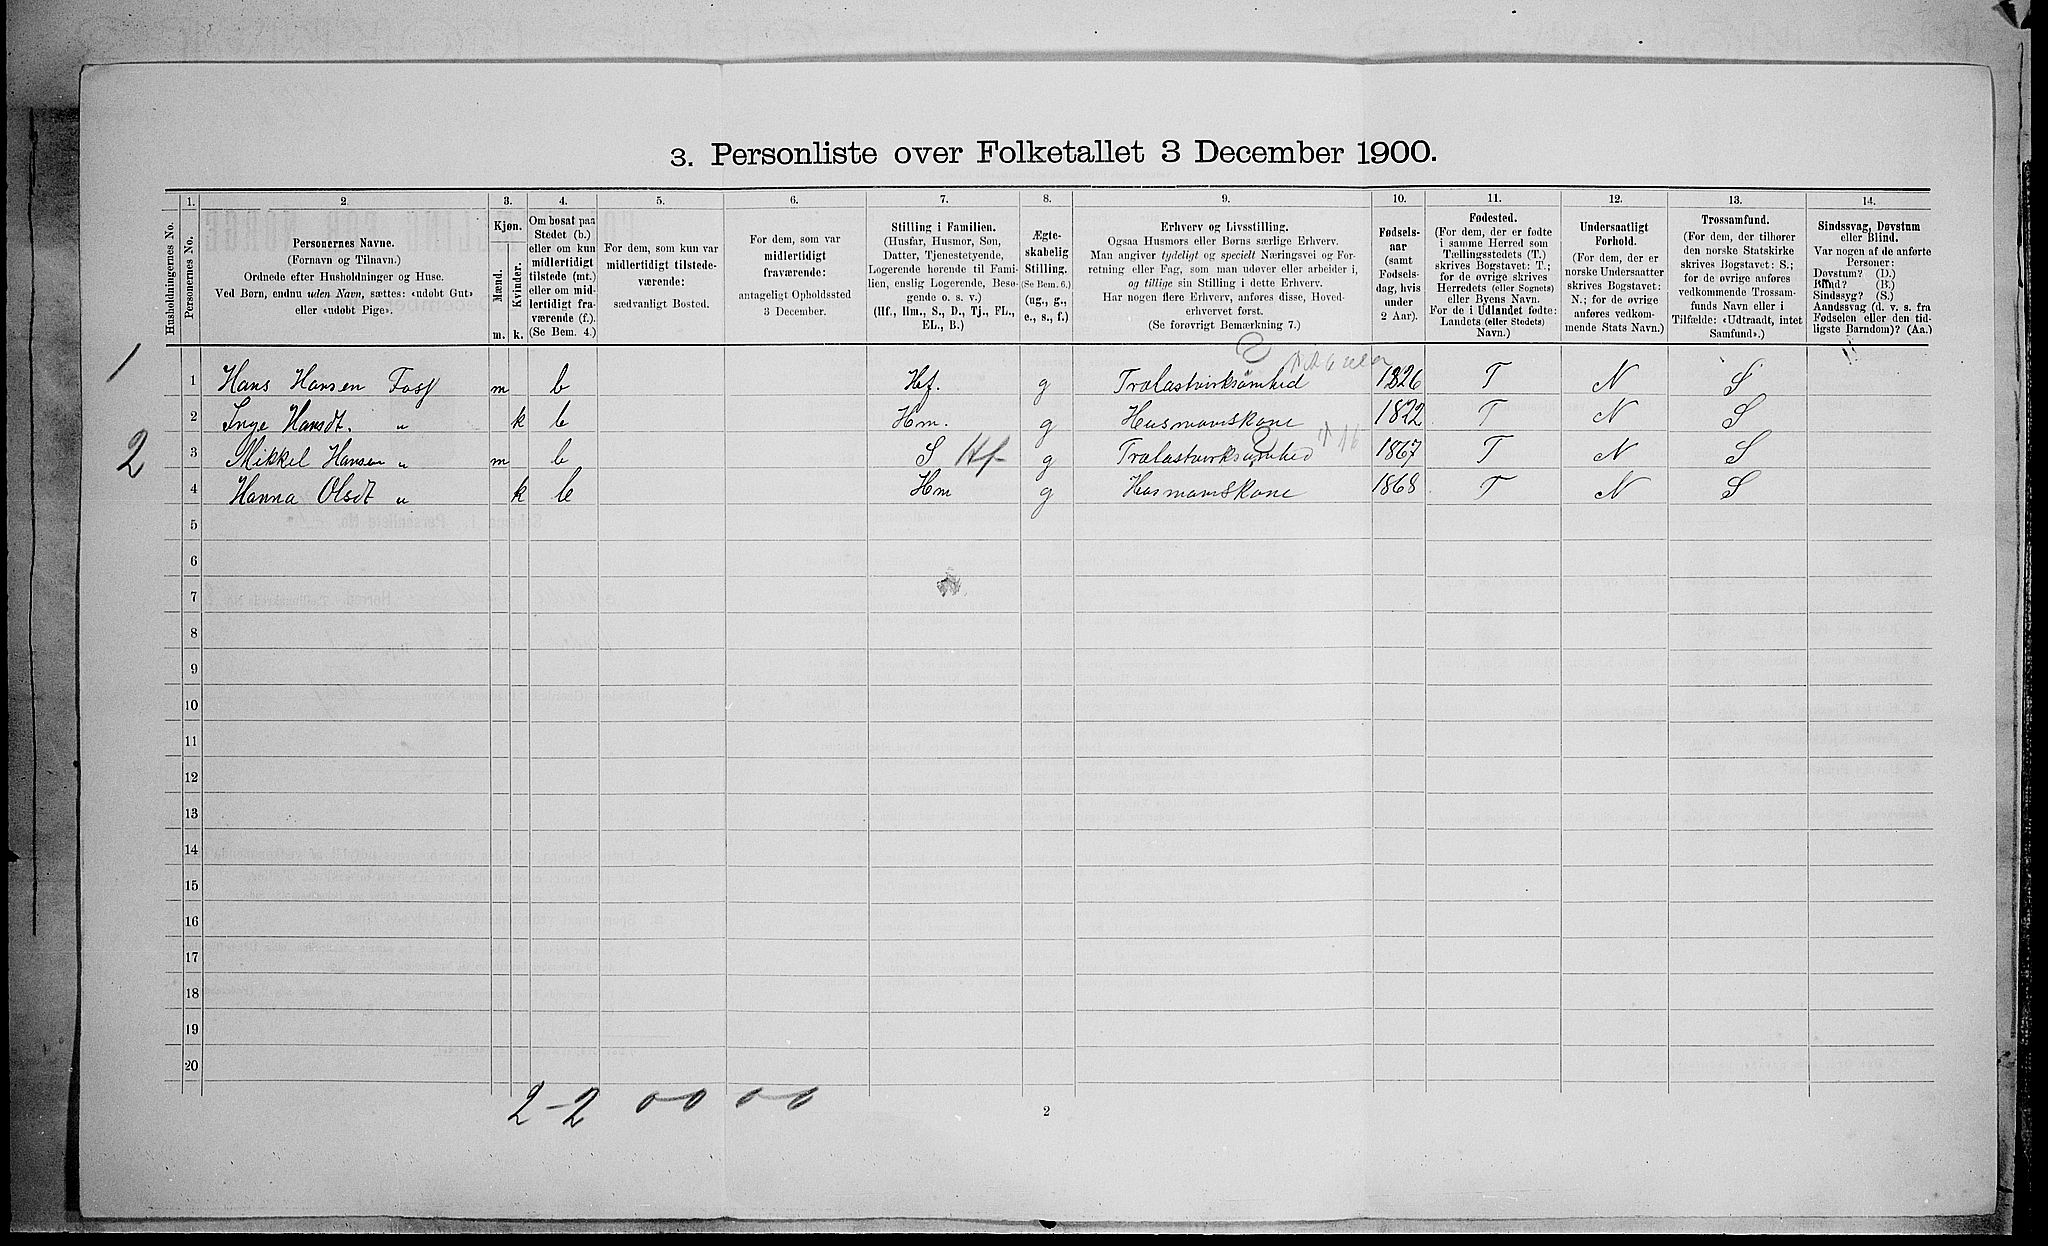 3. Personliste over Folketallet 3 December 1900.
1. 2. 3. 4. 5. 6. 7. 8. 9. 10. 11. 12. 13. 14.
Husholdningernes No.
Personernes No.
Personernes Navne.
(Fornavn og Tilnavn.)
Ordnede efter Husholdninger og Huse.
Ved Børn, endnu uden Navn, sættes: «udøbt Gut»
eller «udøbt Pige».
Kjøn.
Mænd.
Kvinder.
m. k.
Om bosat paa
Stedet (b.)
eller om kun
midlertidigt
tilstede (mt.)
eller om mid-
lertidigt fra-
værende (f.).
(Se Bem. 4.)
For dem, som kun var
midlertidigt tilstede-
værende:
sædvanligt Bosted.
For dem, som var
midlertidigt
fraværende:
antageligt Opholdssted
3 December.
Stilling i Familien.
(Husfar, Husmor, Søn,
Datter, Tjenestetyende,
Logerende hørende til Fami-
lien, enslig Logerende, Besø-
gende o. s. v.)
(Hf., Hm., S., D., Tj., FL.,
EL., B.)
Ægte-
skabelig
Stilling.
(Se Bem. 6.)
(ug., g.,
e., s., f.)
Erhverv og Livsstilling.
Ogsaa Husmors eller Børns særlige Erhverv.
Man angiver tydeligt og specielt Næringsvei og For-
retning eller Fag, som man udøver eller arbeider i,
og tillige sin Stilling i dette Erhverv.
Har nogen flere Erhverv, anføres disse, Hoved-
erhvervet først.
(Se forøvrigt Bemærkning 7.)
Fødsels-
aar
(samt
Fødsels-
dag, hvis
under
2 Aar).
Fødested.
(For dem, der er fødte
i samme Herred som
Tællingsstedets (T.)
skrives Bogstavet: T.;
for de øvrige skrives
Herredets (eller Sognets)
eller Byens Navn.
For de i Udlandet fødte:
Landets (eller Stedets)
Navn.)
Undersaatligt
Forhold.
(For dem, der er
norske Undersaatter
skrives Bogstavet:
N.; for de øvrige
anføres vedkom-
mende Stats Navn.)
Trossamfund.
(For dem, der tilhører
den norske Statskirke
skrives Bogstavet: S.;
for de øvrige anføres
vedkommende Trossam-
funds Navn eller i
Tilfælde: «Udtraadt, intet
Samfund».)
Sindssvag, Døvstum
eller Blind.
Var nogen af de anførte
Personer:
Døvstum? (D.)
Blind? (B.)
Sindssyg? (S.)
Aandssvag (d. v. s. fra
Fødselen eller den tid-
ligste Barndom)? (Aa.)
1 1 Hans Hansen Foss m b Hf. g Trælastvirksomhed 1826 T N S
2 Inge Hansdt. " k b Hm. g Husmandskone 1822 T N S
2 3 Mikkel Hansen " m b S Hf g Trælastvirksomhed 1867 T N S
4 Hanna Olsdt " k b Hm g Husmandskone 1868 T N S
5
6
7
8
9
10
11
12
13
14
15
16
17
18
19
20
2-2 0-0 0-0
2